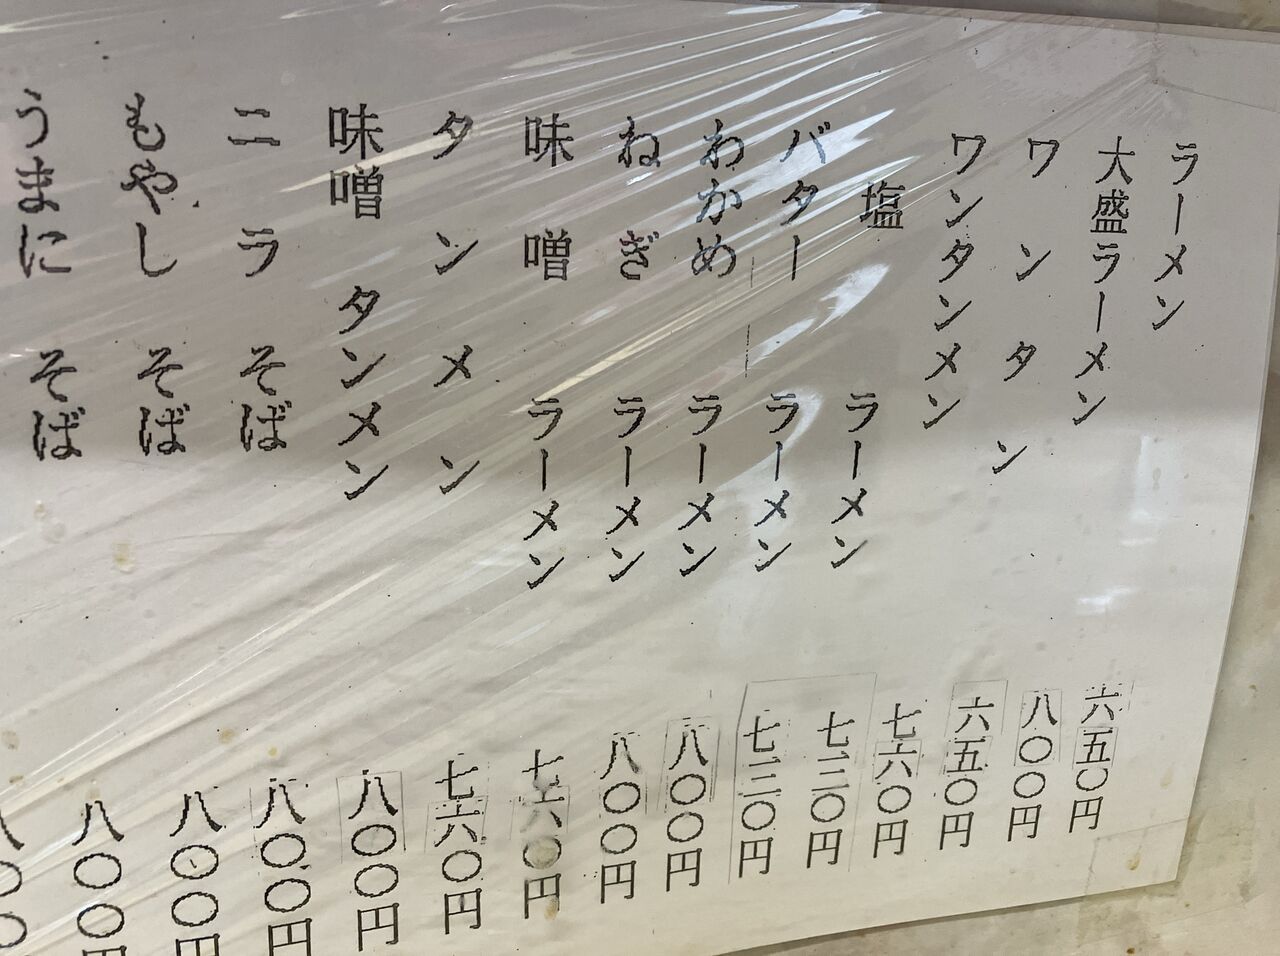 ラーメン 六五〇円
大盛ラーメン 八〇〇円
ワンタン 六五〇円
ワンタンメン 七六〇円
塩ラーメン 七三〇円
バターラーメン 七三〇円
わかめラーメン 八〇〇円
ねぎラーメン 八〇〇円
味噌ラーメン 七六〇円
タンメン 七六〇円
味噌タンメン 八〇〇円
ニラそば 八〇〇円
もやしそば 八〇〇円
うまにそば 八〇〇円